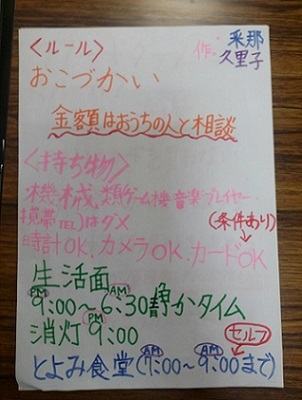 〈ルール〉
作:采那
久里子
おこづかい
金額はおうちの人と相談
〈持ち物〉
機械類ゲーム機音楽プレイヤー
携帯TEL)はダメ
(条件あり)
時計OK.カメラOK.カードOK
生活面
PM AM
9:00~6:30静かタイム
PM
消灯9:00
セルフ
AM AM
とよみ食堂(7:00~9:00まで)